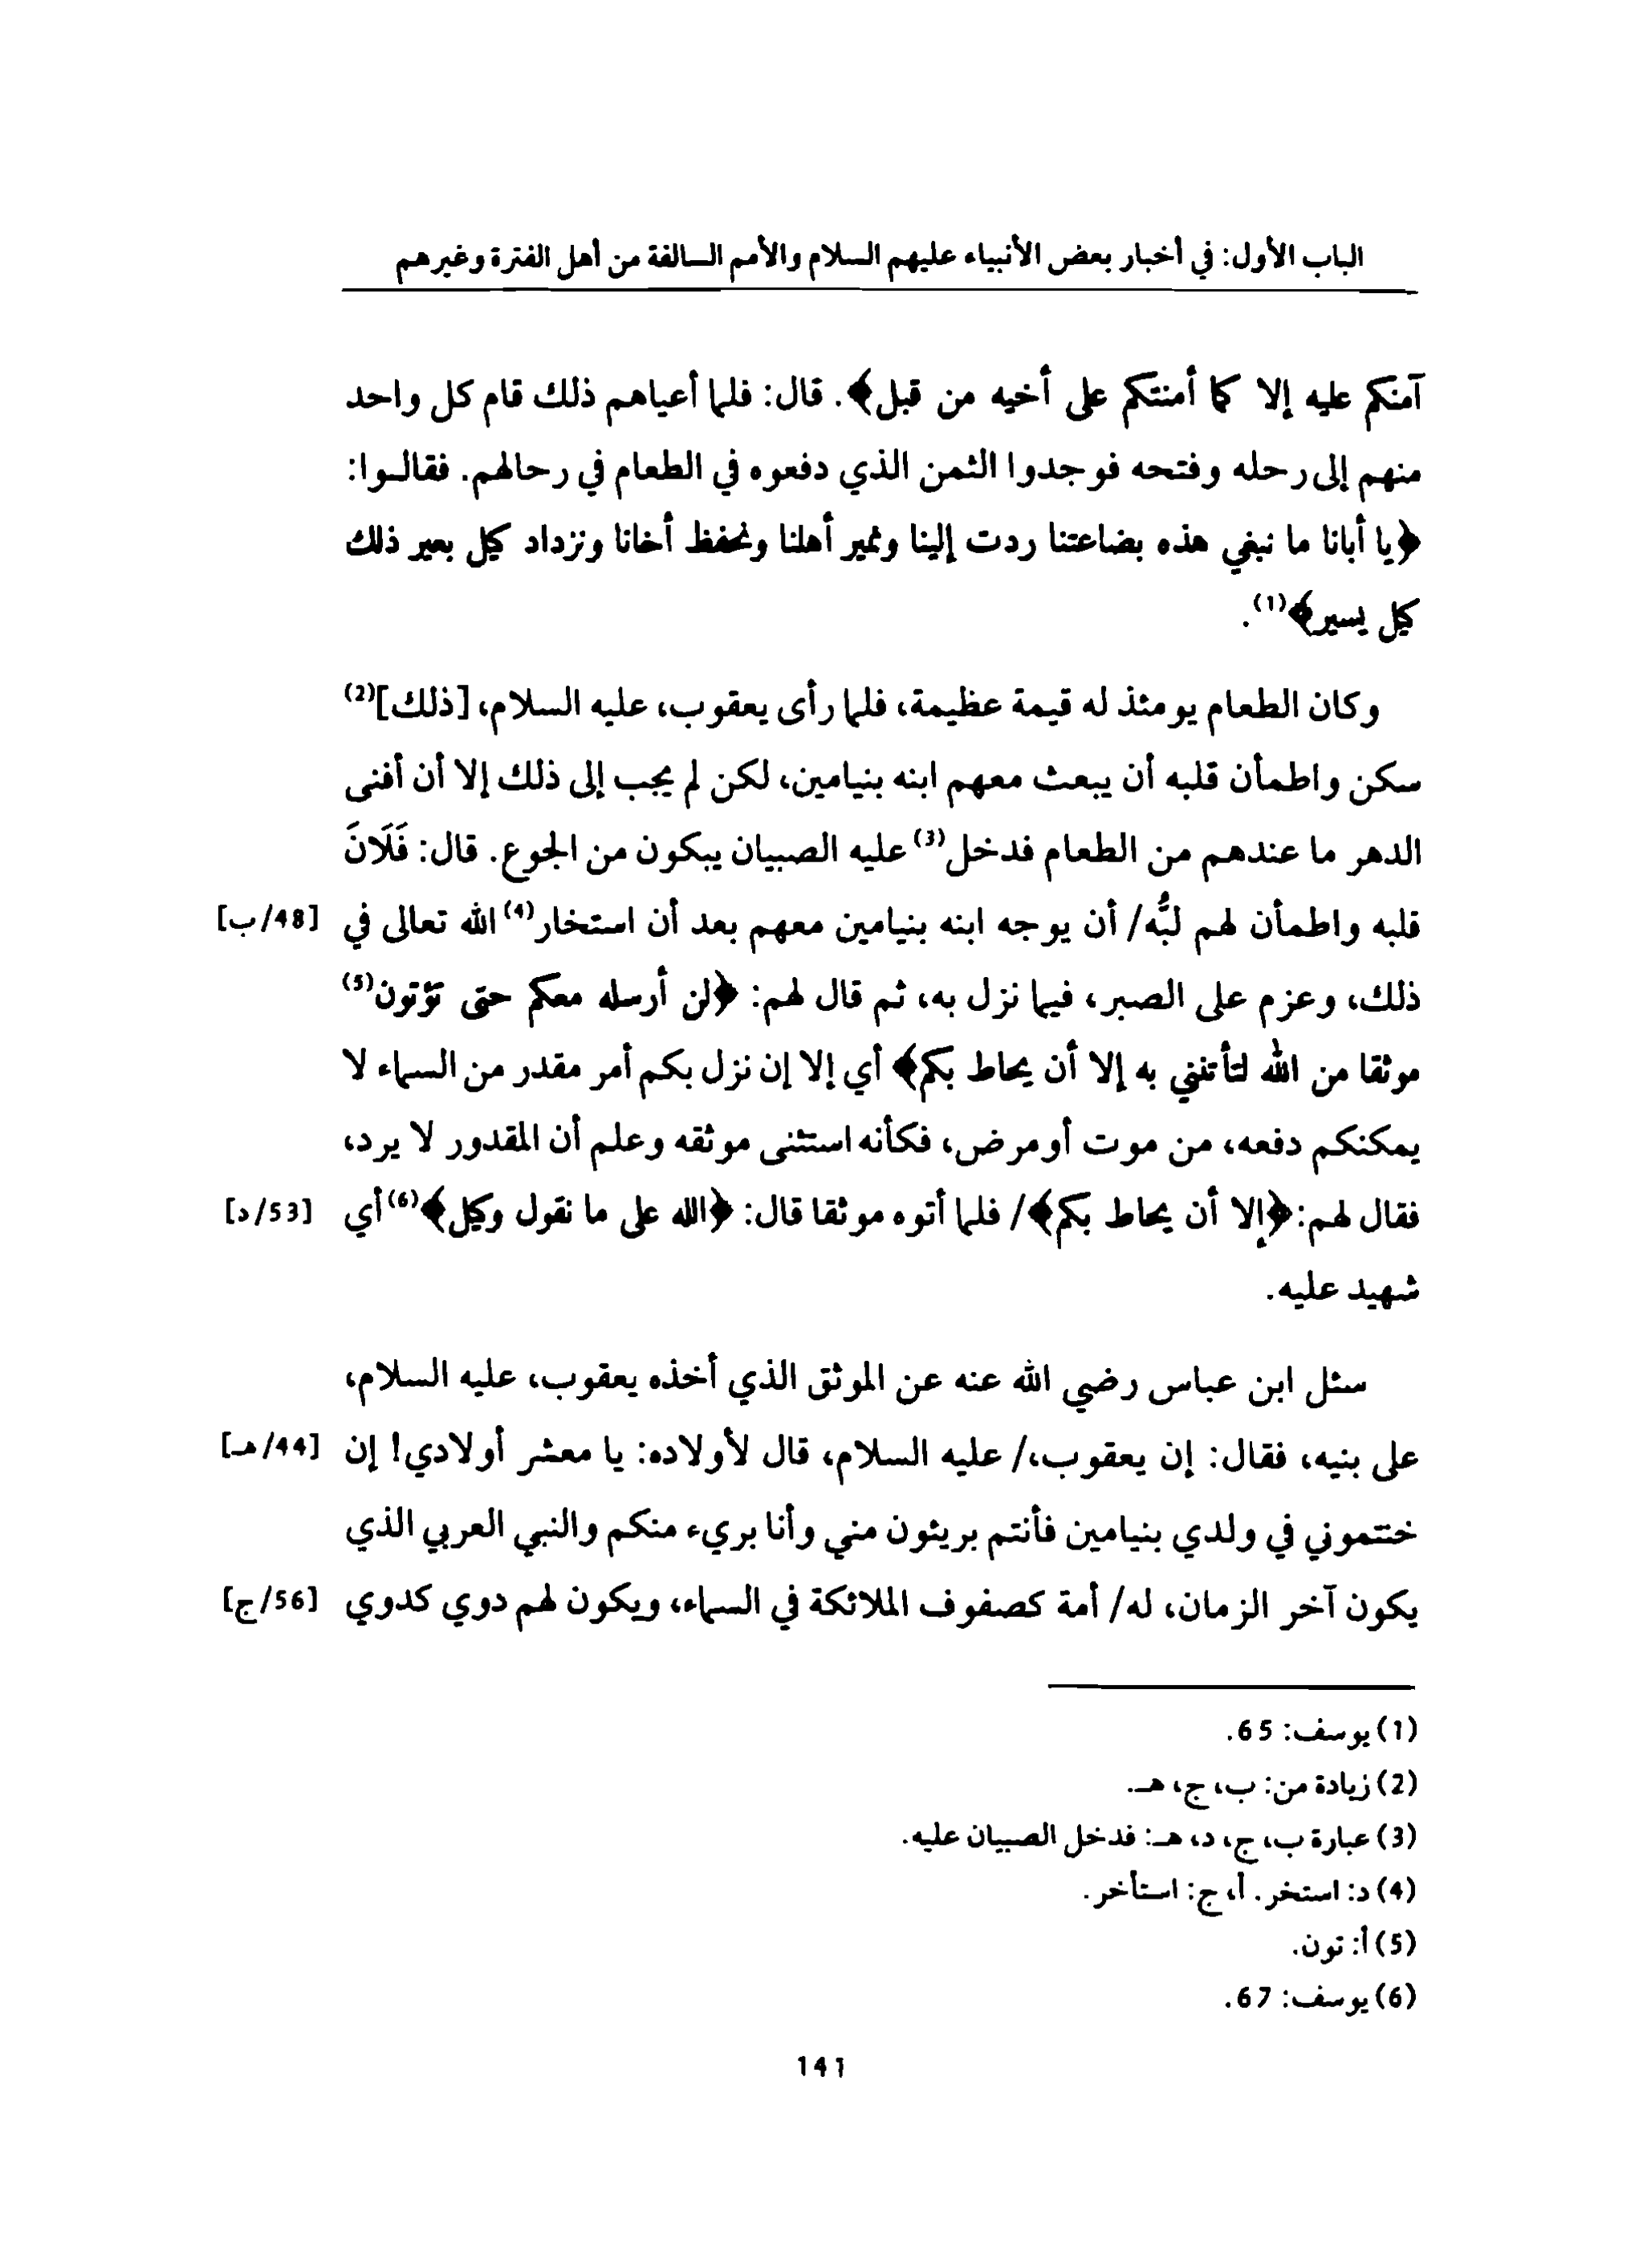 الباب الأول: في أخبار بعض الأنبياء عليهم السلام والأمم السالفة من أهل الفترة وغيرهم
آمنكم عليه إلا كما أمنتكم على أخيه من قبل﴾. قال: فلما أعياهم ذلك قام كل واحد
منهم إلى رحله وفتحه فوجدوا الثمن الذي دفعوه في الطعام في رحالهم. فقالوا:
﴿يا أبانا ما نبغي هذه بضاعتنا ردت إلينا ونمير أهلنا ونحفظ أخانا ونزداد كيل بعير ذلك
كيل يسير﴾(1).
وكان الطعام يومئذ له قيمة عظيمة، فلما رأى يعقوب، عليه السلام، [ذلك](2)
سكن واطمأن قلبه أن يبعث معهم ابنه بنيامين، لكن لم يجب إلى ذلك إلا أن أفنى
الدهر ما عندهم من الطعام فدخل(3) عليه الصبيان يبكون من الجوع. قال: فَلَانَ
قلبه واطمأن لهم لبُّه/ أن يوجه ابنه بنيامين معهم بعد أن استخار(4) الله تعالى في [48/ب]
ذلك، وعزم على الصبر، فيما نزل به، ثم قال لهم: ﴿لن أرسله معكم حتى تؤتون(5)
موثقا من الله لتأتنني به إلا أن يحاط بكم﴾ أي إلا إن نزل بكم أمر مقدر من السماء لا
يمكنكم دفعه، من موت أومرض، فكأنه استثنى موثقه وعلم أن المقدور لا يرد،
فقال لهم: ﴿إلا أن يحاط بكم﴾/ فلما أتوه موثقا قال: ﴿الله على ما نقول وكيل﴾(6) أي [53/د]
شهيد عليه.
سئل ابن عباس رضي الله عنه عن الموثق الذي أخذه يعقوب، عليه السلام،
على بنيه، فقال: إن يعقوب،/ عليه السلام، قال لأولاده: يا معشر أولادي! إن [44/هـ]
ختتموني في ولدي بنيامين فأنتم بريئون مني وأنا بريء منكم والنبي العربي الذي
يكون آخر الزمان، له/ أمة كصفوف الملائكة في السماء، ويكون لهم دوي كدوي [56/ج]
(1) يوسف: 65.
(2) زيادة من: ب، ج، هـ.
(3) عبارة ب، ج، د، هـ: فدخل الصبيان عليه.
(4) د: استخر. أ، ج: استأخر.
(5) أ: تون.
(6) يوسف: 67.
141